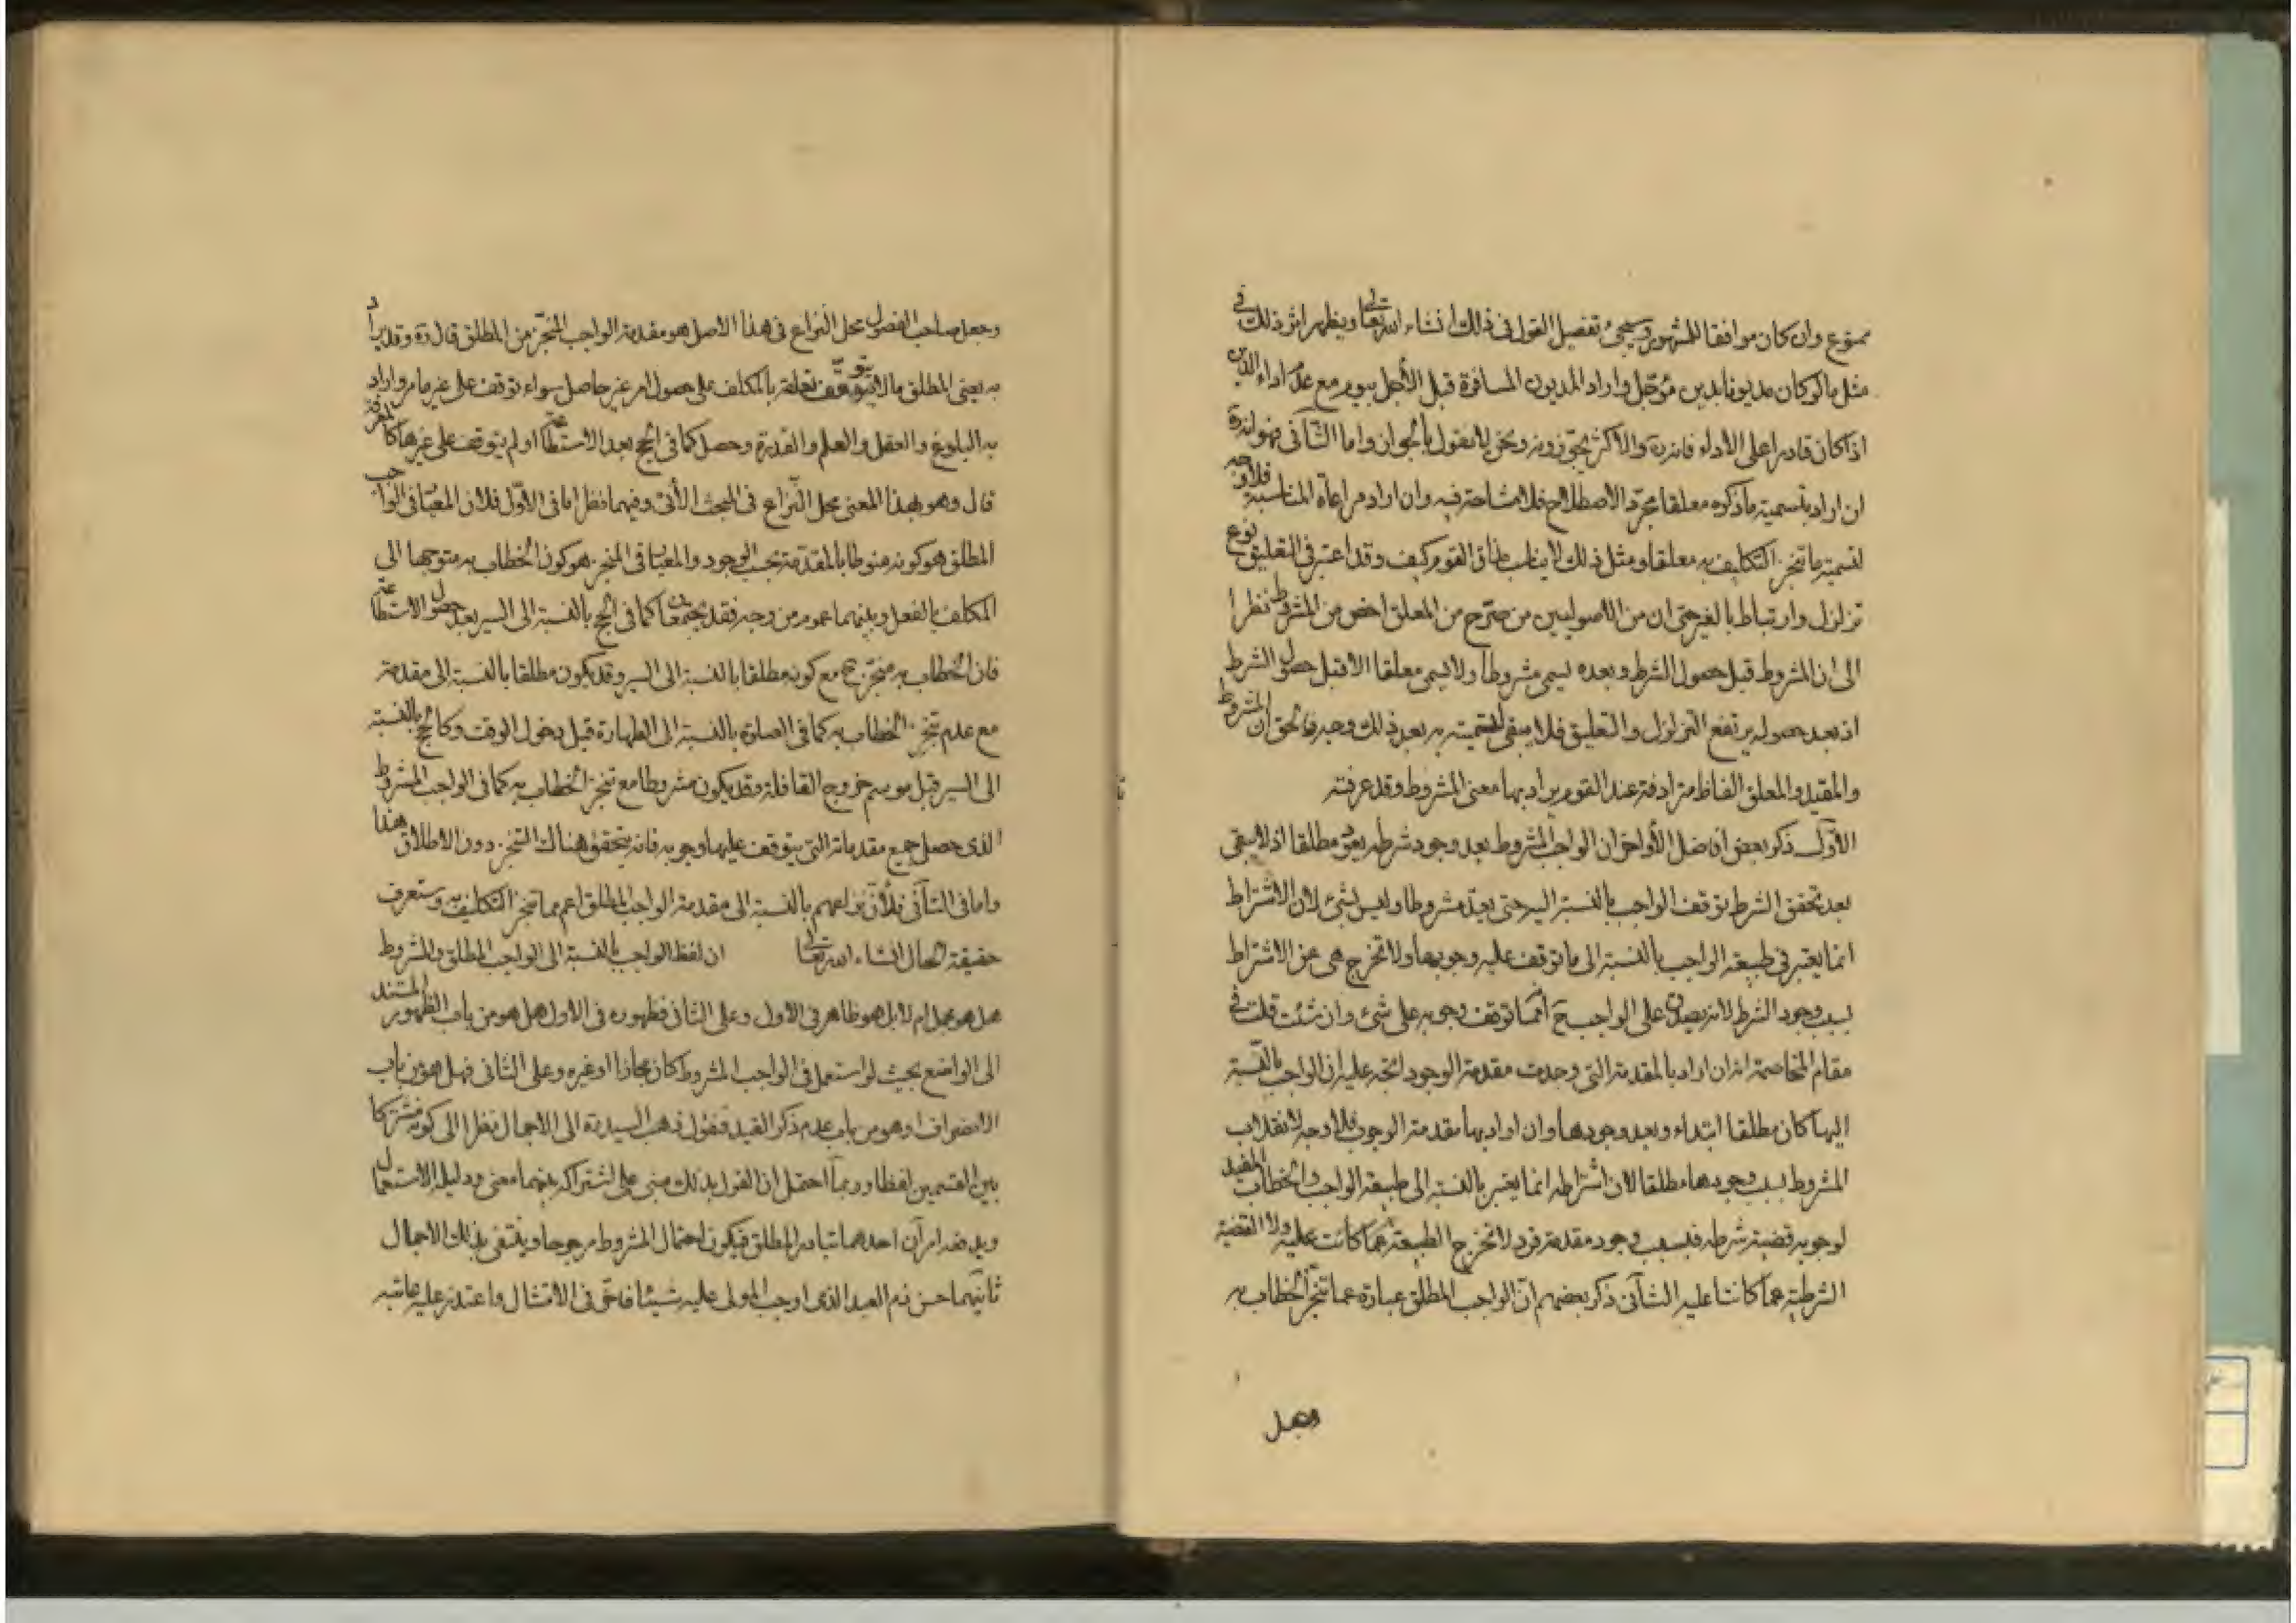 ممنوع وان كان موافقا للمشهور وسيجئ تفصيل القول في ذلك انشاء الله تعالى ويظهر اثر ذلك في
مثل ما لو كان مديونا بدين مؤجل واراد المديون المسافرة قبل الأجل بيوم مع عدم اداء الدين
اذا كان قادرا على الاداء فانه ره والاكثر يجوزونه ونحن لا نقول بالجواز واما الثاني فهو انه ره
ان اراد بتسميته ما ذكره معلقا مجرد الاصطلاح فلا مشاحة فيه وان اراد مراعاة المناسبة فلا وجه
لتسمية ما تنجز التكليف به معلقا ومثل ذلك لا يناسب مذاق القوم كيف وقد اعتبر في التعليق نوع
تزلزل وارتباط بالغير حتى ان من الاصوليين من صرح من المعلق اخص من المشروط نظرا
الى ان المشروط قبل حصول الشرط وبعده يسمى مشروطا ولا يسمى معلقا الا قبل حصول الشرط
اذ بعد حصوله يرتفع التزلزل والتعليق فلا يبقى لتسميته به بعد ذلك وجه فالحق ان المشروط
والمقيد والمعلق الفاظ مترادفة عند القوم يراد بها معنى المشروط وقد عرفته
الأول ذكر بعض افاضل الأواخر ان الواجب المشروط بعد وجود شرطه يعود مطلقا اذ لا يبقى
بعد تحقق الشرط توقف الواجب بالنسبة اليه حتى يعد مشروطا وليس بشئ لان الاشتراط
انما يعتبر في طبيعة الواجب بالنسبة الى ما توقف عليه وجوبها ولا تخرج هي عن الاشتراط
بسبب وجود الشرط لانه يصدق على الواجب ح انما توقف وجوبه على شئ وان شئت قلت في
مقام المخاصمة انه ان اراد بالمقدمة التي وجدت مقدمة الوجود اتجه عليه ان الواجب بالنسبة
اليها كان مطلقا ابتداء وبعد وجودها وان اراد بها مقدمة الوجوب فلا وجه لانقلاب
المشروط بسبب وجودها مطلقا لان اشتراطه انما يعتبر بالنسبة الى طبيعة الواجب والخطاب المفيد
لوجوبه قضية شرطه فبسبب وجود مقدمة فرد لا تخرج الطبيعة عما كانت عليه ولا القضية
الشرطية عما كانتا عليه الثاني ذكر بعضهم ان الواجب المطلق عبارة عما تنجز الخطاب به
وجعل
وجعل صاحب الفصول محل النزاع في هذا الاصل هو مقدمة الواجب المنجز من المطلق قال ره وقد يراد
به يعنى المطلق ما لا يتوقف تعلقه بالمكلف على حصول امر غير حاصل سواء توقف على غير ما مر واراد
به البلوغ والعقل والعلم والقدرة وحصل كما في الحج بعد الاستطاعة او لم يتوقف على غيرها كالمعرفة
قال وهو بهذا المعنى محل النزاع في المبحث الأتي وفيهما نظر اما في الاول فلان المعيار في الواجب
المطلق هو كونه منوطا بالمقدمة بحسب الوجود والمعيار في المنجز هو كون الخطاب به متوجها الى
المكلف بالفعل وبينهما عموم من وجه فقد يجتمعان كما في الحج بالنسبة الى السير بعد حصول الاستطاعة
فان الخطاب به منجز ح مع كونه مطلقا بالنسبة الى السير وقد يكون مطلقا بالنسبة الى مقدمة
مع عدم تنجز الخطاب به كما في الصلوة بالنسبة الى الطهارة قبل دخول الوقت وكالحج بالنسبة
الى السير قبل موسم خروج القافلة وقد يكون مشروطا مع تنجز الخطاب به كما في الواجب المشروط
الذي حصل جميع مقدماته التي يتوقف عليها وجوبه فانه يتحقق هناك التنجز دون الاطلاق هذا
واما في الثاني فلأن نزاعهم بالنسبة الى مقدمة الواجب المطلق اعم مما تنجز التكليف به وستعرف
حقيقة الحال انشاء الله تعالى ان لفظ الواجب بالنسبة الى الواجب المطلق والمشروط
هل هو مجمل ام لا بل هو ظاهر في الاول وعلى الثاني فظهوره في الاول هل هو من باب الظهور المستند
الى الواضع بحيث لو استعمل في الواجب المشروط كان مجازا او غيره وعلى الثاني فهل هو من باب
الانصراف او هو من باب عدم ذكر القيد فنقول ذهب السيد ره الى الاجمال نظرا الى كونه مشتركا
بين القسمين لفظا وربما احتمل ان القول بذلك مبنى على اشتراكه بينهما معنى ودليله الاستعمال
ويدفعه امران احدهما تبادر المطلق فيكون احتمال المشروط مرجوحا وينتفى بذلك الاجمال
ثانيهما حسن ذم العبد الذي اوجب المولى عليه شيئا في الامتثال واعتذر عليه